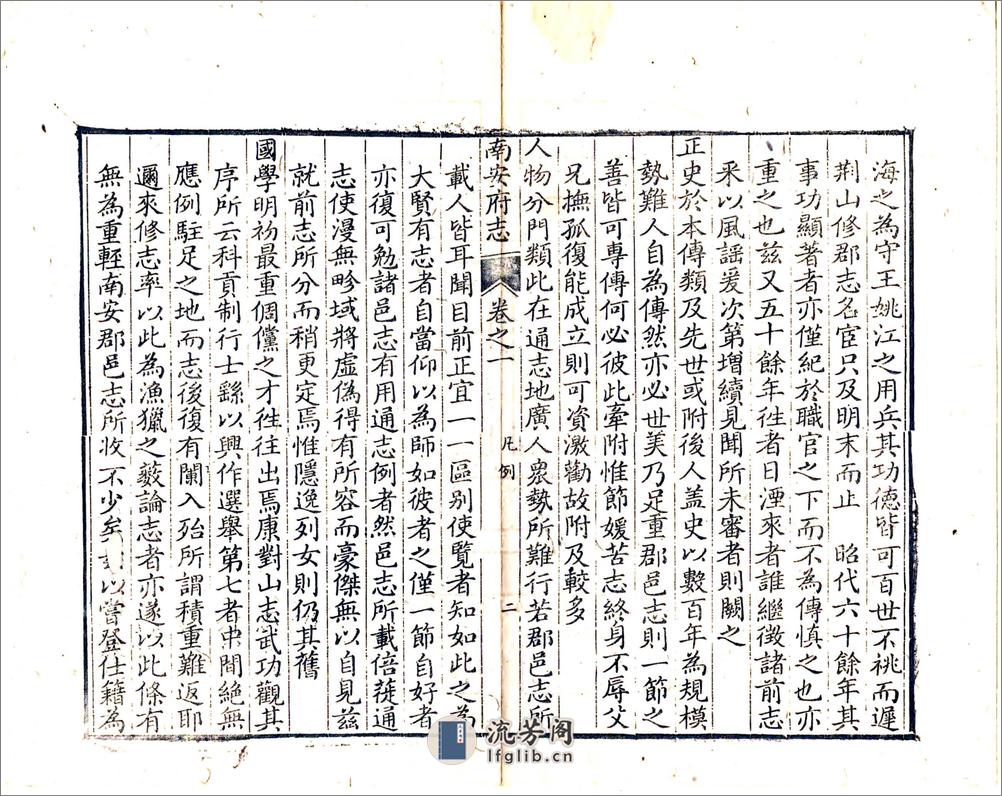 海之為守王姚江之用兵其功德皆可百世不祧而遲
荆山修郡志名宦只及明末而止　昭代六十餘年其
事功顯著者亦僅紀於職官之下而不為傳慎之也亦
重之也兹又五十餘年徃者日湮來者誰繼徴諸前志
釆以風謡爰次第增續見聞所未審者則闕之
正史於本傳類及先世或附後人盖史以數百年為規模
勢難人自為傳然亦必世美乃足重郡邑志則一節之
善皆可專傳何必彼此牽附惟節媛苦志終身不辱父
兄撫孤復能成立則可資激勸故附及較多
人物分門類此在通志地廣人衆勢所難行若郡邑志所
南安府志
卷之一
凡例
二
載人皆耳聞目前正宜一一區别使覽者知如此之為
大賢有志者自當仰以為師如彼者之僅一節自好者
亦復可勉諸邑志有用通志例者然邑志所載倍蓰通
志使漫無畛域將虚偽得有所容而豪傑無以自見兹
就前志所分而稍更定焉惟隱逸列女則仍其舊
國學明初最重倜儻之才徃往出焉康對山志武功觀其
序所云科貢制行士繇以興作選舉第七者中間絶無
應例駐足之地而志後復有闌入殆所謂積重難返耶
邇來修志率以此為漁獵之藪論志者亦遂以此條有
無為重輕南安郡邑志所收不少矣以嘗登仕籍為
流芳阁
lfglib.cn